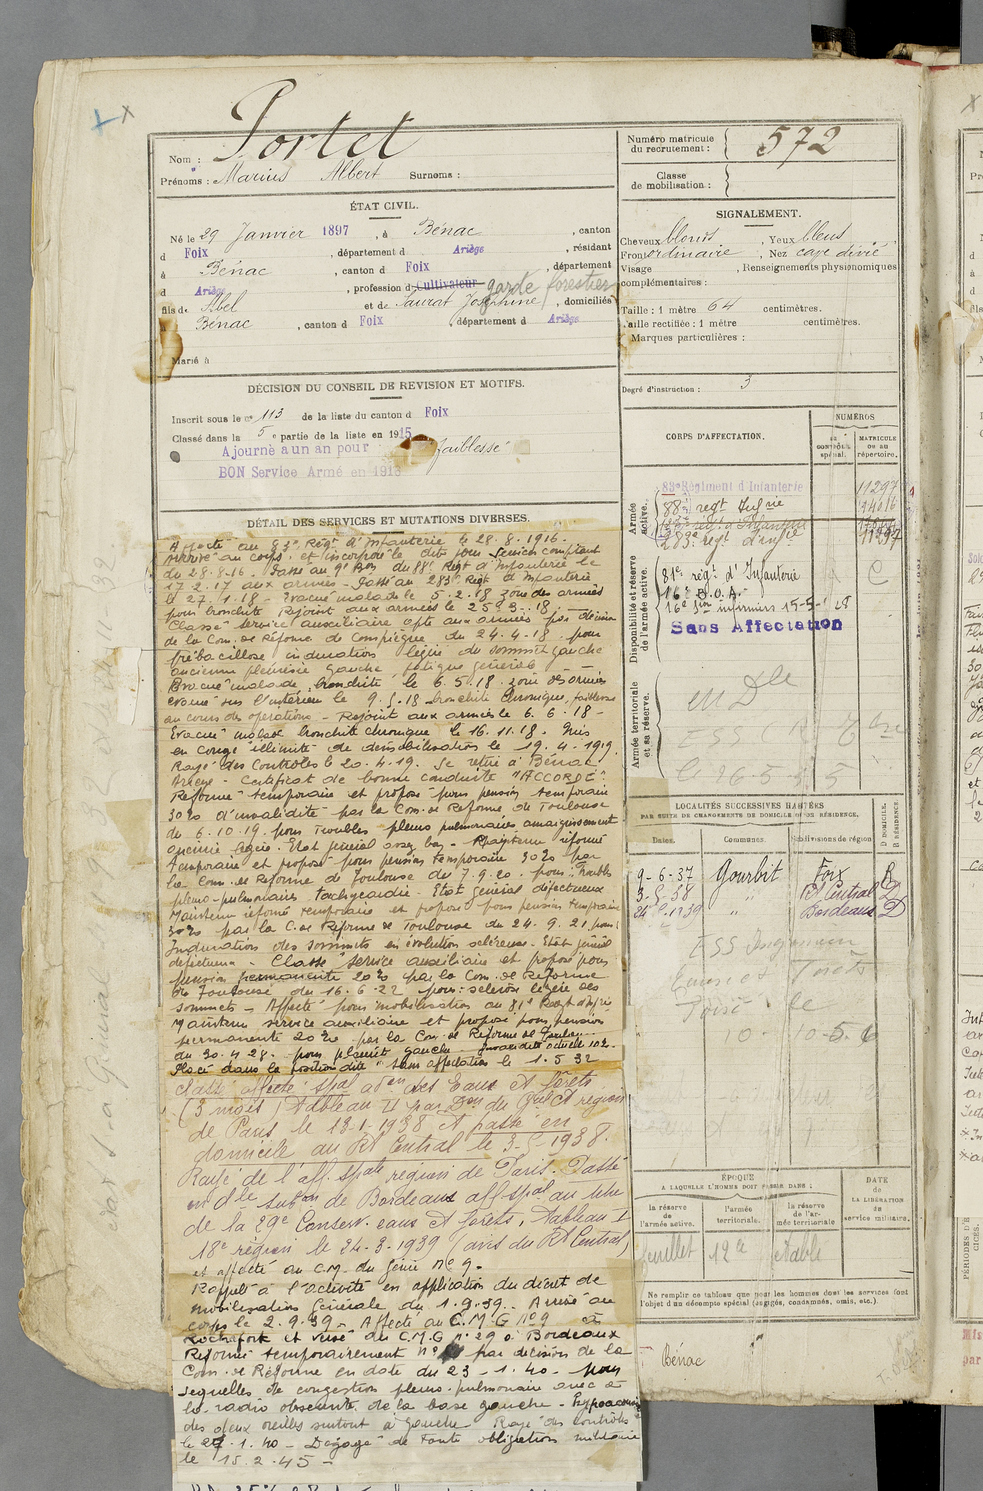 Portet
Nom :
Prénoms : Marius Albert Surnoms :
Numéro matricule du recrutement : 572
Classe de mobilisation :
ÉTAT CIVIL.
Né le 29 Janvier 1897, à Bénac, canton
d Foix, département d Ariège, résidant
à Bénac, canton d Foix, département
d Ariège, profession d Cultivateur garde forestier
fils de Abel et de Saurat Joséphine, domiciliés
Bénac, canton d Foix, département d Ariège
Marié à
SIGNALEMENT.
Cheveux blonds, Yeux bleus
Front ordinaire, Nez
Visage , Renseignements physionomiques
complémentaires :
Taille : 1 mètre 64 centimètres.
Taille rectifiée : 1 mètre centimètres.
Marques particulières :
Degré d'instruction : 3
DÉCISION DU CONSEIL DE REVISION ET MOTIFS.
Inscrit sous le n° 113 de la liste du canton d Foix
Classé dans la 5e partie de la liste en 1915
Ajourné à un an pour faiblesse
BON Service Armé en 191
DÉTAIL DES SERVICES ET MUTATIONS DIVERSES.
Affecté au 83e Régt d'Infanterie le 28.8.1916.
Arrivé au corps et incorporé le dit jour. Services comptant
du 28-8-16. Passé au 9e Bon du 88e Régt d'Infanterie le
17.2.17 aux armées - Passé au 283e Régt d'Infanterie
le 27.1.18 - Evacué malade le 5.2.18 zone des armées
pour bronchite Rejoint aux armées le 25-3-18.
Classé service auxiliaire apte aux armées par décision
de la Com. de Réforme de Compiègne du 24-4-18 pour
prébacillose induration légère du sommet gauche
ancienne pleurésie gauche fatigue générale
Evacué malade bronchite le 6.5.18. zone des armées
évacué sur l'intérieur le 9.5.18 bronchite chronique, faiblesse
au cours des opérations - Rejoint aux armées le 6.6.18 -
Evacué malade bronchite chronique le 16.11.18. Mis
en congé illimité de démobilisation le 19.4.1919.
Rayé des contrôles le 20.4.19. Se retire à Bénac
Ariège - Certificat de bonne conduite "ACCORDÉ"
Réformé temporaire et proposé pour pension temporaire
30% d'invalidité par la Com. de Réforme de Toulouse
du 6.10.19 pour troubles pleuro pulmonaires amaigrissement
anémie légère. Etat général assez bon - Maintenu réformé
temporaire et proposé pour pension temporaire 30% par
la Com. de Réforme de Toulouse du 7.9.20. pour : troubles
pleuro-pulmonaires tachycardie - Etat général défectueux
Maintenu réformé temporaire et proposé pour pension temporaire
30% par la C. de Réforme de Toulouse du 24.9.21 pour :
Induration des sommets en évolution scléreuse. Etat général
défectueux - Classé service auxiliaire et proposé pour
pension permanente 20% par la Com. de Réforme
de Toulouse du 16.6.22 pour : sclérose légère des
sommets - Affecté pour mobilisation au 81e Régt d'Infie
Maintenu service auxiliaire et proposé pour pension
permanente 20% par la Com. de Réforme de Toulouse
du 30.4.28. - pour pleurite gauche - Invalidité actuelle 10%.
Placé dans la position dite "sans affectation le 1.5.32
Classé affecté spal don des Eaux et forêts
(3 mois) Tableau II par Don du Gal Ct région
de Paris le 13-1-1938 et passé en
domicile au Rt Central le 3-5-1938.
Rayé de l'aff. spale région de Paris. Passé
en dle subon de Bordeaux aff. spal au titre
de la 29e Conserv. eaux et forêts, Tableau I
18e région le 24-3-1939 (avis du Rt Central)
et affecté au C.M. du Génie n° 9.
Rappelé à l'activité en application du décret de
mobilisation Générale du 1.9.39. Arrivé au
corps le 2.9.39 - Affecté au C.M.G n° 9 de
Rochefort et versé du C.M.G n° 29 à Bordeaux
Réformé temporairement n° par décision de la
Com. de Réforme en date du 23-1-40 - pour
séquelles de congestion pleuro-pulmonaire avec à
la radio obscurité de la base gauche - Hypoacousie
des deux oreilles surtout à gauche - Rayé des contrôles
le 27.1.40 - Dégagé de toute obligation militaire
le 15.2.45 -
CORPS D'AFFECTATION.
NUMÉROS
au contrôle spécial.
MATRICULE ou au répertoire.
Armée active.
83e Régiment d'Infanterie 11297
88e régt Infrie
283e régt d'Infie 11297
Disponibilité et réserve de l'armée active.
81e régt d'Infanterie C
16e S.O.A.
16e Son infirmiers 15-5-
Sans Affectation
Armée territoriale et sa réserve.
en Dle
ESS
LOCALITÉS SUCCESSIVES HABITÉES
PAR SUITE DE CHANGEMENTS DE DOMICILE OU DE RÉSIDENCE.
Dates. Communes. Subdivisions de région D DOMICILE. R RÉSIDENCE.
9-6-37 Gourbit Foix R
3-5-38 " Rt Central D
1939 " Bordeaux D
ESS
Eaux et Forêts
Foix le
ÉPOQUE
A LAQUELLE L'HOMME DOIT PASSER DANS :
la réserve de l'armée active.
l'armée territoriale.
la réserve de l'armée territoriale
DATE de LA LIBÉRATION du service militaire.
feuillet 12e établi
Ne remplir ce tableau que pour les hommes dont les services font l'objet d'un décompte spécial (engagés, condamnés, omis, etc.).
Bénac